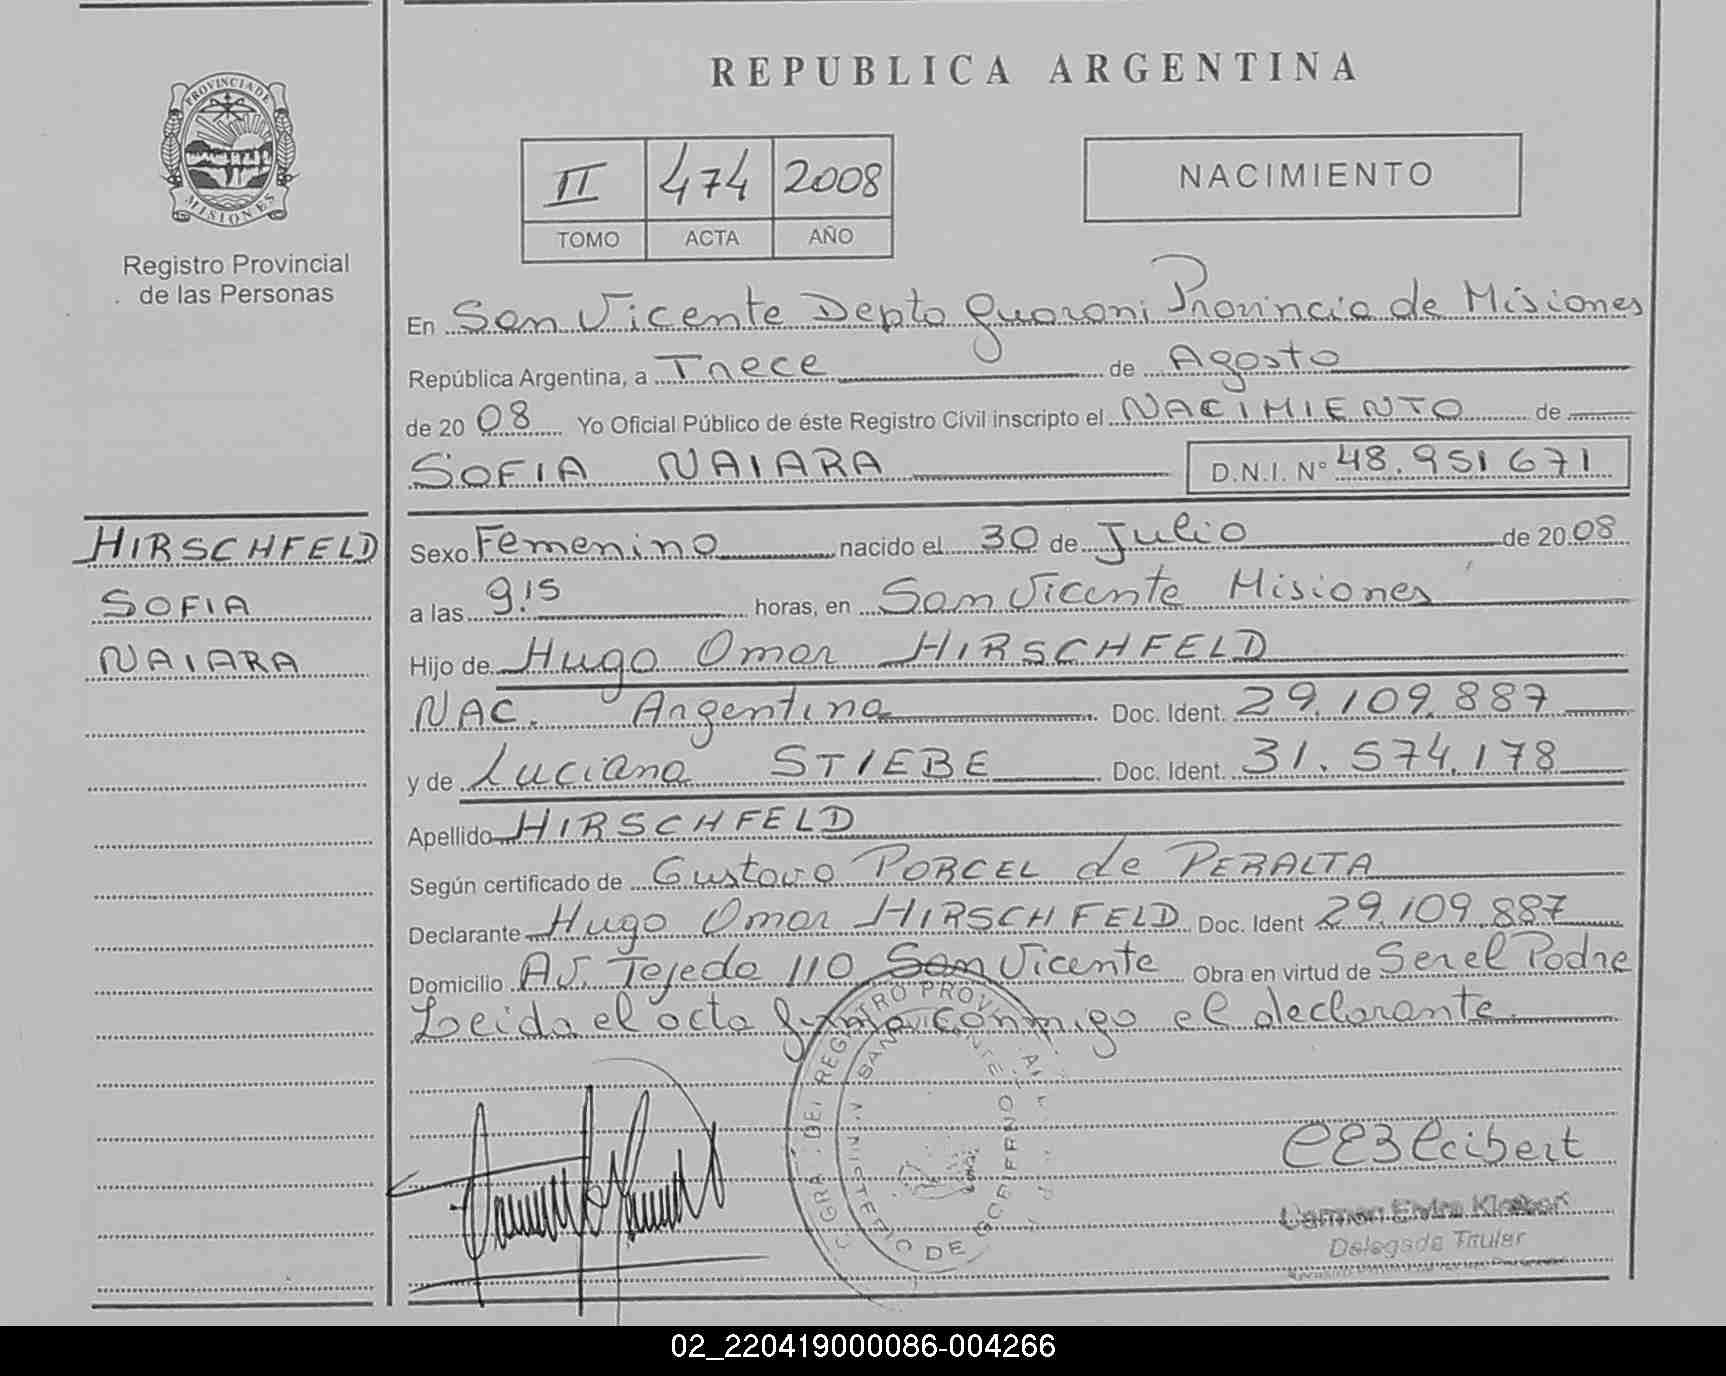 REPUBLICA ARGENTINA
PROVINCIA DE
MISIONES
Registro Provincial
de las Personas
II 474 2008
TOMO ACTA AÑO
NACIMIENTO
En San Vicente Depto Guarani Provincia de Misiones
República Argentina, a Trece de Agosto
de 2008 Yo Oficial Público de éste Registro Civil inscripto el NACIMIENTO de
SOFIA NAIARA D.N.I. N° 48.951671
HIRSCHFELD
SOFIA
NAIARA
Sexo Femenino nacido el 30 de Julio de 2008
a las 9.15 horas, en San Vicente Misiones
Hijo de Hugo Omar HIRSCHFELD
NAC. Argentina Doc. Ident. 29.109.887
y de Luciana STIEBE Doc. Ident. 31.574.178
Apellido HIRSCHFELD
Según certificado de Gustavo PORCEL de PERALTA
Declarante Hugo Omar HIRSCHFELD Doc. Ident 29.109.887
Domicilio Av. Tejeda 110 San Vicente Obra en virtud de Ser el Padre
Leida el acta firma conmigo el declarante
REGISTRO PROV
SAN
DE
Carmen Elvira
Delegada Titular
02_220419000086-004266